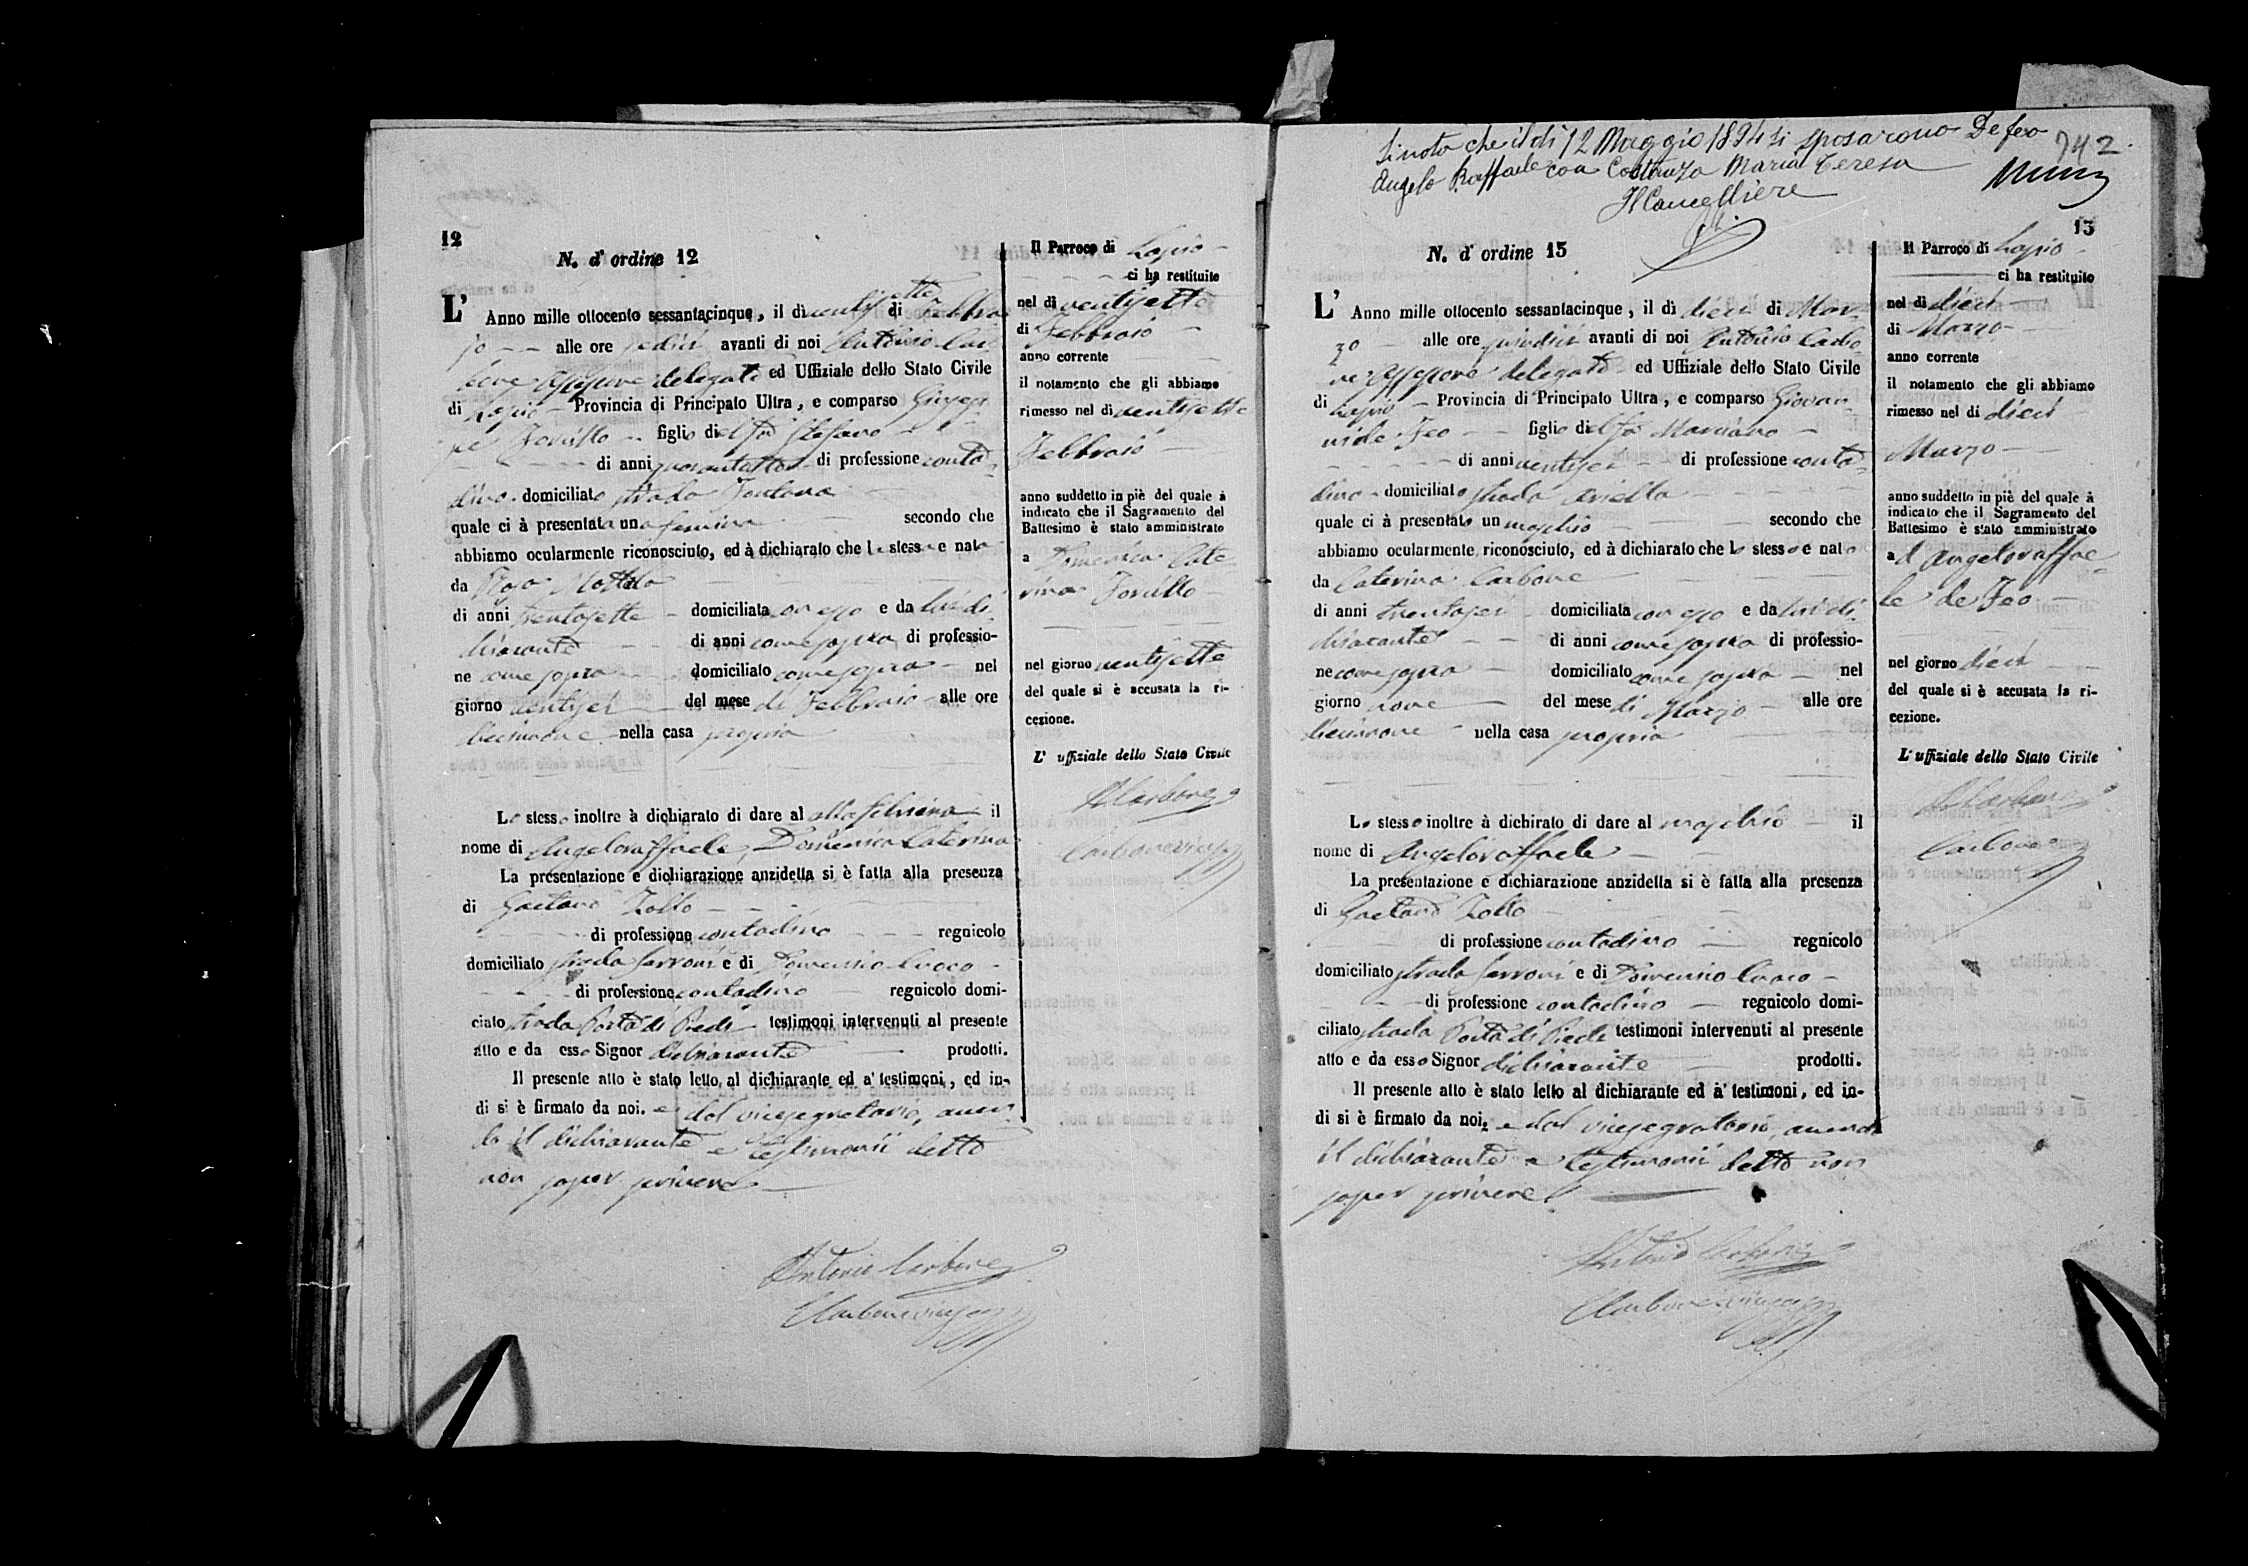 12
N. d' ordine 12
L' Anno mille ottocento sessantacinque, il dì ventisette di Febbra
jo alle ore sedici avanti di noi Antonio Car
bone Assessore delegato ed Uffiziale dello Stato Civile
di Lapio Provincia di Principato Ultra, e comparso Giusep
pe Forillo figlio del fu Stefano
di anni quarantotto di professione conta
dino domiciliato strada Fontana
quale ci à presentata una femina secondo che
abbiamo ocularmente riconosciuto, ed à dichiarato che la stessa e nata
da Rosa
di anni trentasette domiciliata con esso e da lui di
chiarante di anni come sopra di professio-
ne come sopra domiciliato come sopra nel
giorno ventisei del mese di Febbraio alle ore
diecinnove nella casa propria
Lo stesso inoltre à dichiarato di dare al alla femina il
nome di Angelaraffaele, Domenica Caterina
La presentazione e dichiarazione anzidetta si è fatta alla presenza
di Gaetano Zollo
di professione contadino regnicolo
domiciliato strada Sarroni e di Domenico Cuoco
di professione contadino regnicolo domi-
ciato strada Porta di Piedi testimoni intervenuti al presente
atto e da esso Signor dichiarante prodotti.
Il presente atto è stato letto al dichiarante ed a' testimoni, ed in-
di si è firmato da noi. e dal vicesegretario, aven
do il dichiarante e testimonii detto
non saper scrivere
Antonio Carbone
Carbone
Il Parroco di Lapio
ci ha restituito
nel dì ventisette
di Febbraio
anno corrente
il notamento che gli abbiamo
rimesso nel dì ventisette
Febbraio
anno suddetto in piè del quale à
indicato che il Sagramento del
Battesimo è stato amministrato
a Domenica Cate
rina Forillo
nel giorno ventisette
del quale si è accusata la ri-
cezione.
L' uffiziale dello Stato Civile
A Carbone
Carbone
Si nota che il dì 12 Maggio 1894 si sposarono De Feo
Angelo Raffaele con Costanza Maria Teresa
Il Cancelliere
942.
13
N. d' ordine 13
L' Anno mille ottocento sessantacinque, il dì dieci di Mar
zo alle ore quindici avanti di noi Antonio Carbo
ne Assessore delegato ed Uffiziale dello Stato Civile
di Lapio Provincia di Principato Ultra, e comparso Giovan
ni de Feo figlio del fu Marciano
di anni ventisei di professione conta
dino domiciliato strada Ariella
quale ci à presentato un maschio secondo che
abbiamo ocularmente riconosciuto, ed à dichiarato che lo stesso e nato
da Caterina Carbone
di anni trentasei domiciliata con esso e da lui di
chiarante di anni come sopra di professio-
ne come sopra domiciliato come sopra nel
giorno nove del mese di Marzo alle ore
diecinnove nella casa propria
Lo stesso inoltre à dichirato di dare al maschio il
nome di Angeloraffaele
La presentazione e dichiarazione anzidetta si è fatta alla presenza
di Gaetano Zollo
di professione contadino regnicolo
domiciliato strada Sarroni e di Domenico Cuoco
di professione contadino regnicolo domi-
ciliato strada Porta di Piedi testimoni intervenuti al presente
atto e da esso Signor dichiarante prodotti.
Il presente atto è stato letto al dichiarante ed a' testimoni, ed in-
di si è firmato da noi, e dal vicesegretario, avendo
il dichiarante e testimonii detto non
saper scrivere
Antonio Carbone
Carbone
Il Parroco di Lapio
ci ha restituito
nel dì dieci
di Marzo
anno corrente
il notamento che gli abbiamo
rimesso nel dì dieci
Marzo
anno suddetto in piè del quale à
indicato che il Sagramento del
Battesimo è stato amministrato
ad Angeloraffae
le de Feo
nel giorno dieci
del quale si è accusata la ri-
cezione.
L' uffiziale dello Stato Civile
A Carbone
Carbone